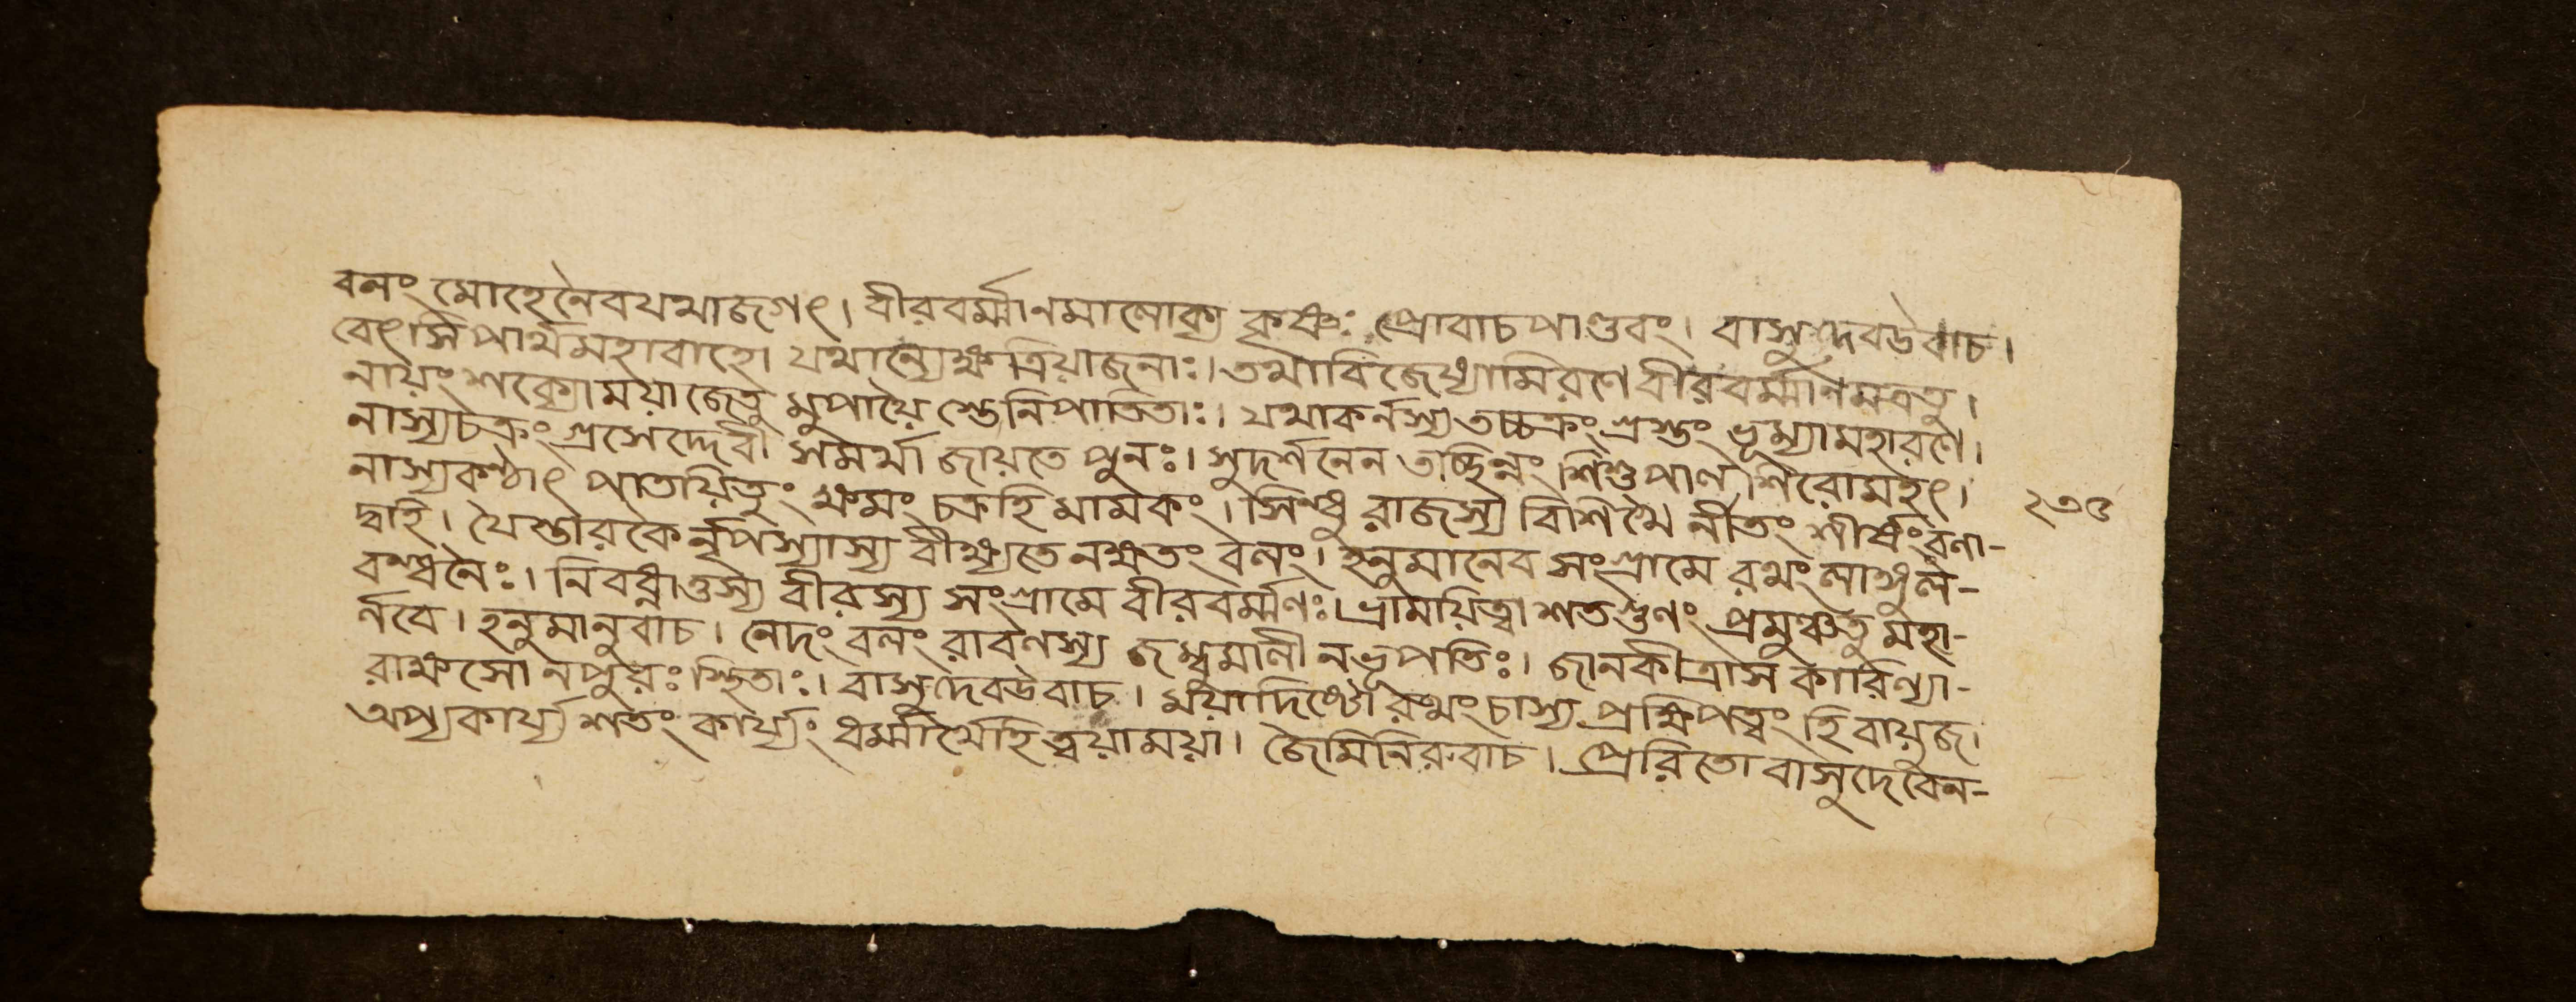 বলং মোহেনৈবযথাজগৎ। বীরবর্ম্মাণমালোক্য কৃষ্ণঃ প্রোবাচপাণ্ডবং। বাসুদেবউবাচ।
বেৎসি পার্থমহাবাহো যথান্যেক্ষত্রিয়াজনাঃ। তথাবিজেষ্যামিরণে বীরবর্ম্মাণমত্রতু।
নায়ং শক্যোময়াজেতু মুপাযৈ স্তেনিপাতিতাঃ। যথাকর্নস্যতচ্চক্রং গ্রস্তং ভূম্যামহারণে।
নাস্যচক্রং গ্রসেদ্দেবী সমর্থা জায়তে পুনঃ। সুদর্শনেন তচ্ছিন্নং শিশুপাল শিরোমহৎ।
নাস্যকণ্ঠাৎ পাতয়িতুং ক্ষমং চক্রহি মামকং। সিন্ধু রাজস্য বিশিখৈ র্নীতং শীর্ষংবলা-
দ্বহি। যৈস্তারকৈর্নৃপস্যাস্য বীক্ষ্যতে নক্ষতং বলং। হনুমানেব সংগ্রামে রথং লাঙ্গুল-
বন্ধনৈঃ। নিবধ্নাতুস্য বীরস্য সংগ্রামে বীরবর্ম্মণঃ। ভ্রাময়িত্বা শতগুণং প্রমুঞ্চতু মহা-
র্নবে। হনুমানুবাচ। নেদং বলং রাবণস্য জম্বুমালী নভূপতিঃ। জানকীত্রাস কারিণ্যা-
রাক্ষসো নপুরঃ স্থিতাঃ। বাসুদেবউবাচ। ময়াদিষ্টো রথং চাস্য প্রক্ষিপত্বং হি বায়ুজ।
অপ্যকার্য্য শতং কার্য্যং ধর্ম্মার্থেহি ত্বয়াময়া। জৈমিনিরুবাচ। প্রেরিতো বাসুদেবেন-
২৩৫